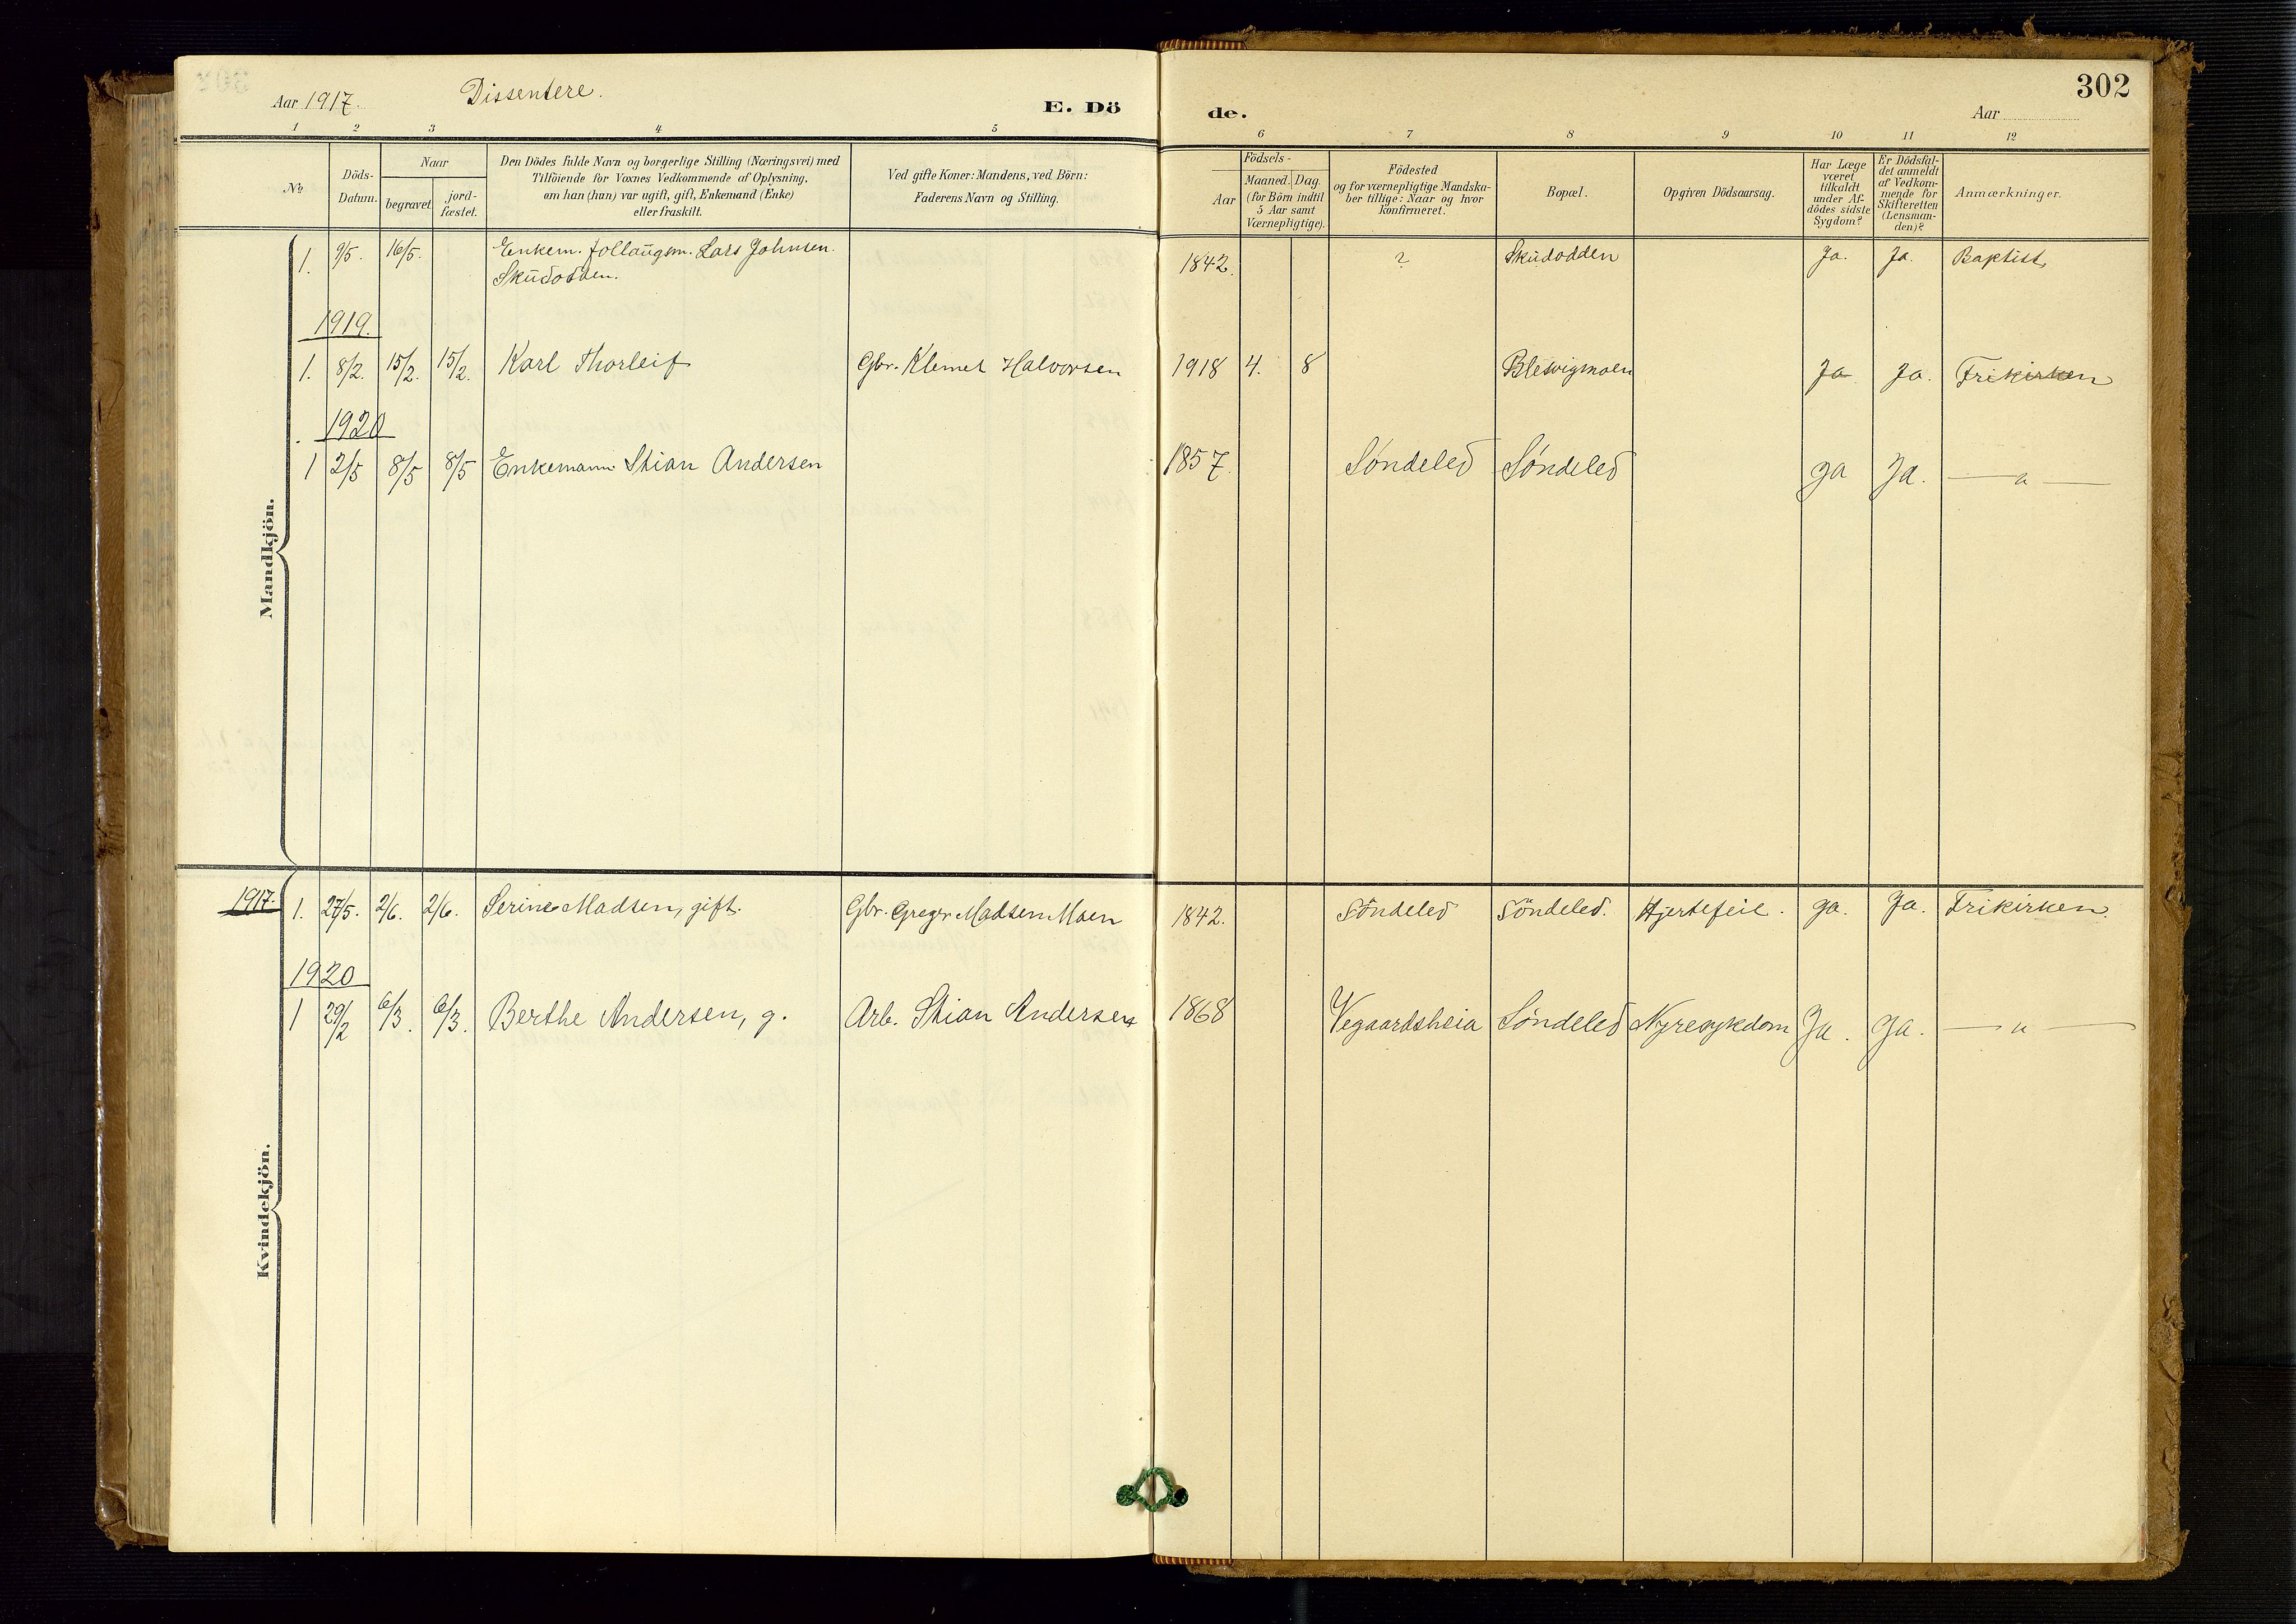 Aar 1917. Dissentere. E. Dö de. Aar 302
1 2 3 4 5 6 7 8 9 10 11 12
No
Döds-Datum.
Naar
begravet.
jord-fæstet.
Den Dödes fulde Navn og borgerlige Stilling (Næringsvei) med
Tilföiende for Voxnes Vedkommende af Oplysning,
om han (hun) var ugift, gift, Enkemand (Enke)
eller fraskilt.
Ved gifte Koner: Mandens, ved Börn:
Faderens Navn og Stilling.
Födsels-
Aar
Maaned. Dag.
(for Börn indtil
5 Aar samt
Værnepligtige).
Födested
og for værnepligtige Mandska-
ber tillige: Naar og hvor
konfirmeret.
Bopæl.
Opgiven Dödsaarsag.
Har Læge
været
tilkaldt
under Af-
dödes sidste
Sygdom?
Er Dödsfal-
det anmeldt
af Vedkom-
mende for
Skifteretten
(Lensman-
den)?
Anmærkninger.
Mandkjön.
1. 9/5. 16/5. Enkem. Lars Johnsen 1842. ? Skudodden Ja. Ja. Baptist
Skudodden.
1919.
1. 8/2. 15/2. 15/2. Karl Thorleif Gbr. Klemet Halvorsen 1918 4. 8 Blesvigmoen Ja Ja. Frikirken
1920
1 2/5 8/5 8/5 Enkemann Stian Andersen 1857. Söndeled Söndeled Ja Ja. — " —
Kvindekjön.
1917. 1. 27/5. 2/6. 2/6. Serine Madsen, gift. Gbr. Greger Madsen Moen 1842. Söndeled Söndeled. Hjertefeil. Ja. Ja. Frikirken.
1920
1 29/2 6/3. 6/3. Berthe Andersen, g. Arb. Stian Andersen 1868 Vegaardsheia Söndeled Nyresykdom Ja. Ja. — " —